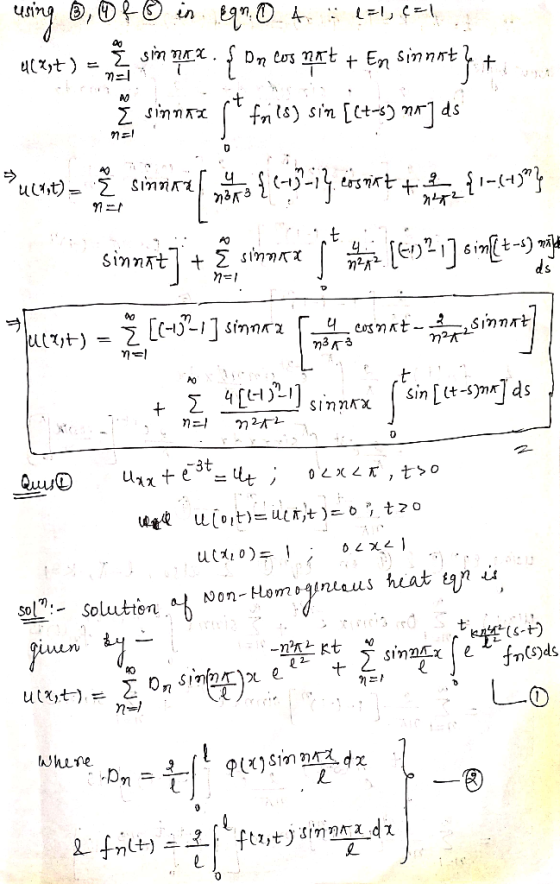 using ③, ④ & ⑤ in eqn ① & ∵ l=1, c=1
u(x,t) = ∞ Σ n=1 sin nπx/1 . { Dn cos nπt/1 + En sin nπt } +
∞ Σ n=1 sin nπx ∫₀ᵗ fn(s) sin [(t-s) nπ] ds
⇒ u(x,t) = ∞ Σ n=1 sin nπx [ 4/n³π³ { (-1)ⁿ-1 } cos nπt + 2/n²π² { 1-(-1)ⁿ }
sin nπt ] + ∞ Σ n=1 sin nπx ∫₀ᵗ 4/n²π² [(-1)ⁿ-1] sin[(t-s) nπ] ds
⇒ u(x,t) = ∞ Σ n=1 [(-1)ⁿ-1] sin nπx [ 4/n³π³ cos nπt - 2/n²π² sin nπt ]
+ ∞ Σ n=1 4[(-1)ⁿ-1]/n²π² sin nπx ∫₀ᵗ sin [(t-s)nπ] ds
Ques ① uxx + e^-3t = ut ; 0<x<π, t>0
u(0,t) = u(π,t) = 0 ; t≥0
u(x,0) = 1 ; 0<x<1
solⁿ:- solution of Non-Homogineous heat eqn is
given by -
u(x,t) = ∞ Σ n=1 Dn sin(nπ/l)x e^(-n²π²/l² kt) + ∞ Σ n=1 sin nπx/l ∫₀ᵗ e^(kn²π²/l² (s-t)) fn(s)ds
①
where Dn = 2/l ∫₀ˡ φ(x) sin nπx/l dx
② 
& fn(t) = 2/l ∫₀ˡ f(x,t) sin nπx/l dx